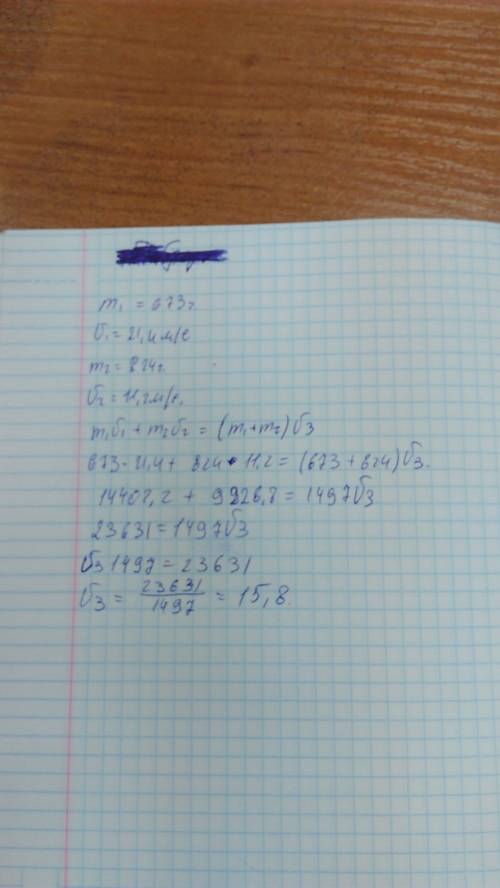 m₁ = 673 г.
υ₁ = 21,4 м/с
m₂ = 824 г.
υ₂ = 11,2 м/с.
m₁υ₁ + m₂υ₂ = (m₁+m₂)υ3
673 · 21,4 + 824 · 11,2 = (673 + 824)υ3.
14402,2 + 9228,8 = 1497υ3
23631 = 1497υ3
υ3 1497 = 23631
υ3 = 23631/1497 = 15,8.